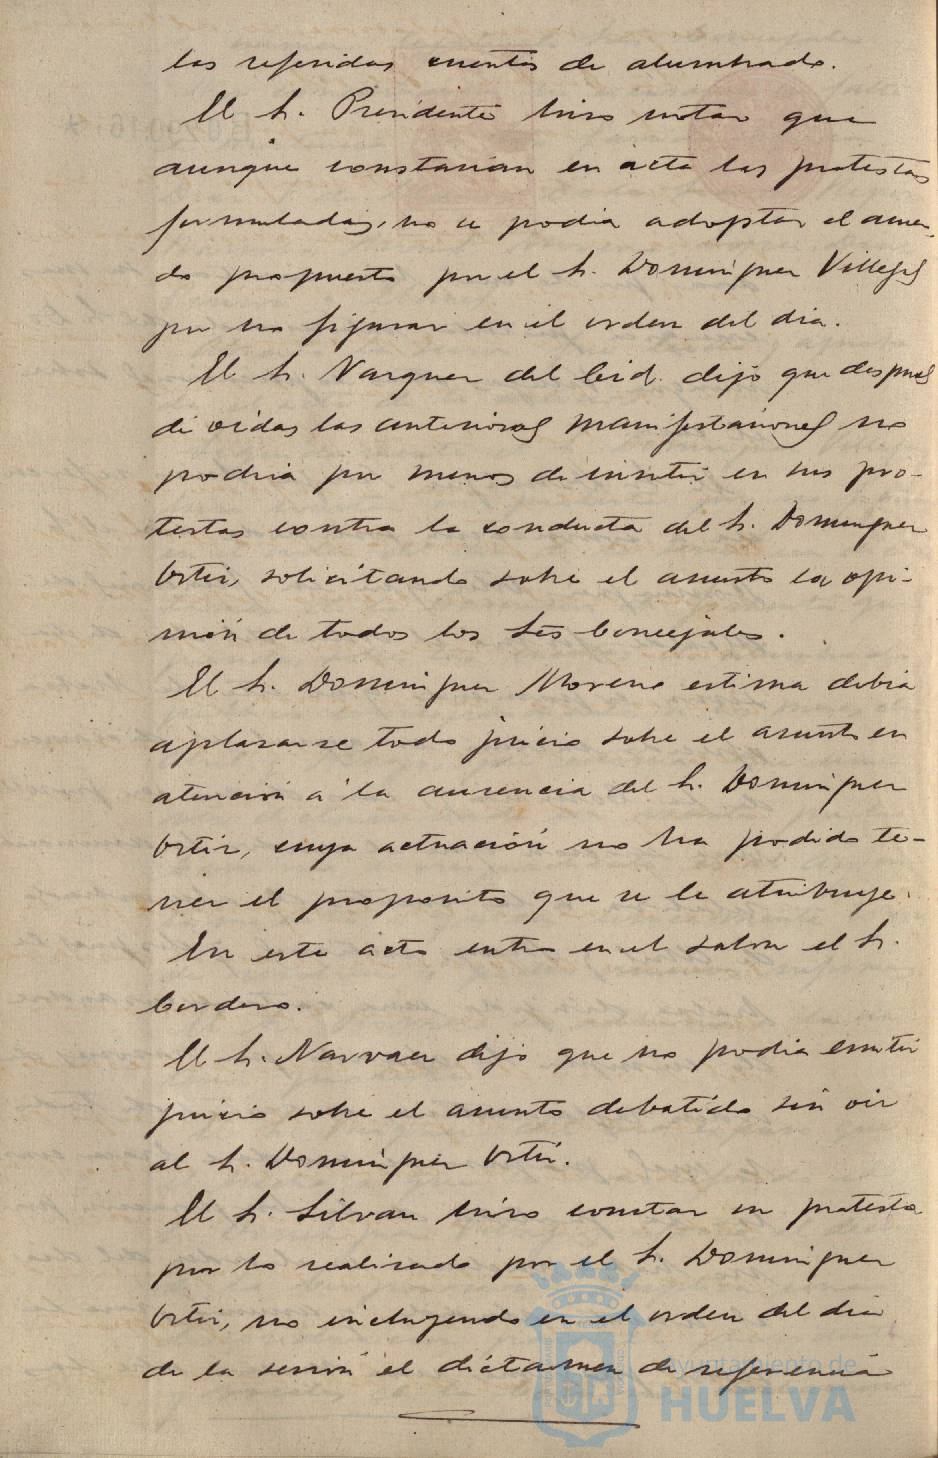 las referidas cuentas de alumbrado.
El Sr. Presidente hizo notar que
aunque constarian en acta las protestas
formuladas, no se podia adoptar el acuer-
do propuesto por el Sr. Dominguez Villegas
por no figurar en el orden del dia.
El Sr. Vazquez del Cid. dijo que despues
de oidas las anteriores manifestaciones no
podria por menos de insistir en sus pro-
testas contra la conducta del Sr. Dominguez
Ortiz, solicitando sobre el asunto la opi-
nión de todos los Sres Concejales.
El Sr. Dominguez Moreno estima debia
aplazarse todo juicio sobre el asunto en
atención á la ausencia del Sr. Dominguez
Ortiz, cuya actuación no ha podido te-
ner el proposito que se le atribuye.
En este acto entro en el salon el Sr.
Cordero.
El Sr. Narvaez dijo que no podia emitir
juicio sobre el asunto debatido sin oir
al Sr. Dominguez Ortiz.
El Sr. Silvan hizo constar su protesta
por lo realizado por el Sr. Dominguez
Ortiz, no incluyendo en el orden del dia
de la sesión el dictamen de referencia
Ayuntamiento de
HUELVA